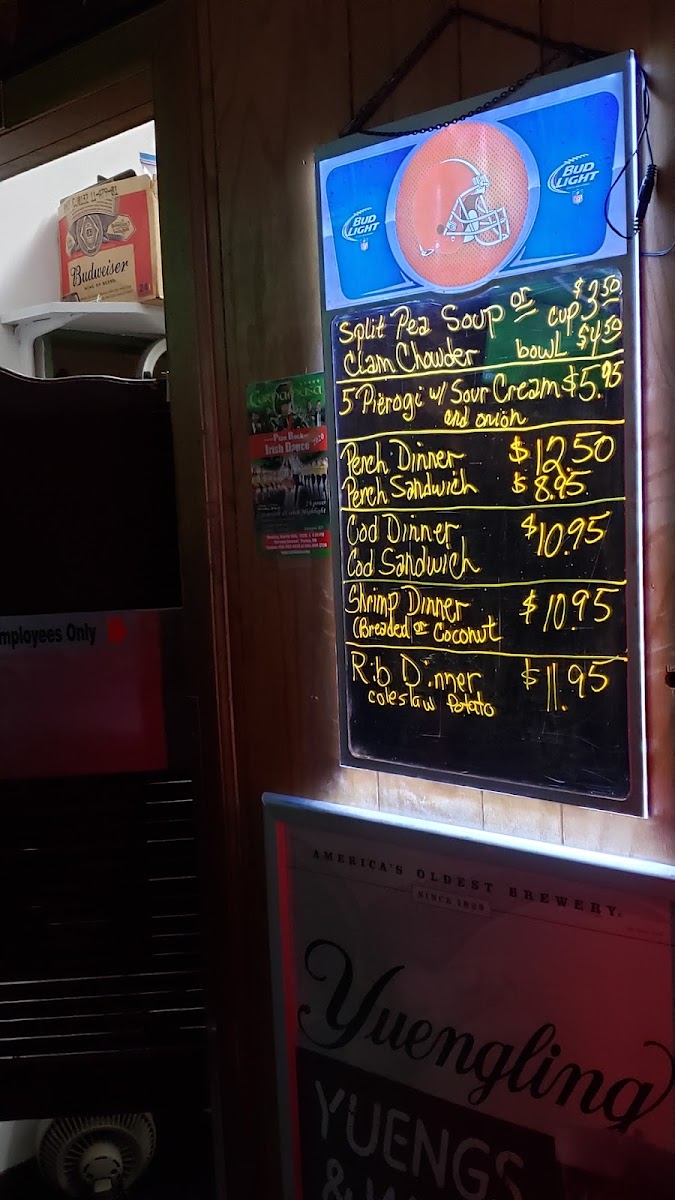 Budweiser
KING OF BEERS
24
BUD LIGHT
BUD LIGHT
Split Pea Soup or cup $3.50
Clam Chowder bowl $4.50
5 Pierogi w/ Sour Cream $5.95
and onion
Perch Dinner $12.50
Perch Sandwich $8.95
Cod Dinner $10.95
Cod Sandwich
Shrimp Dinner $10.95
(Breaded or Coconut
Rib Dinner $11.95
coleslaw Potato
Irish Dance
mployees Only
AMERICA'S OLDEST BREWERY.
SINCE 1829
Yuengling
YUENGS
&